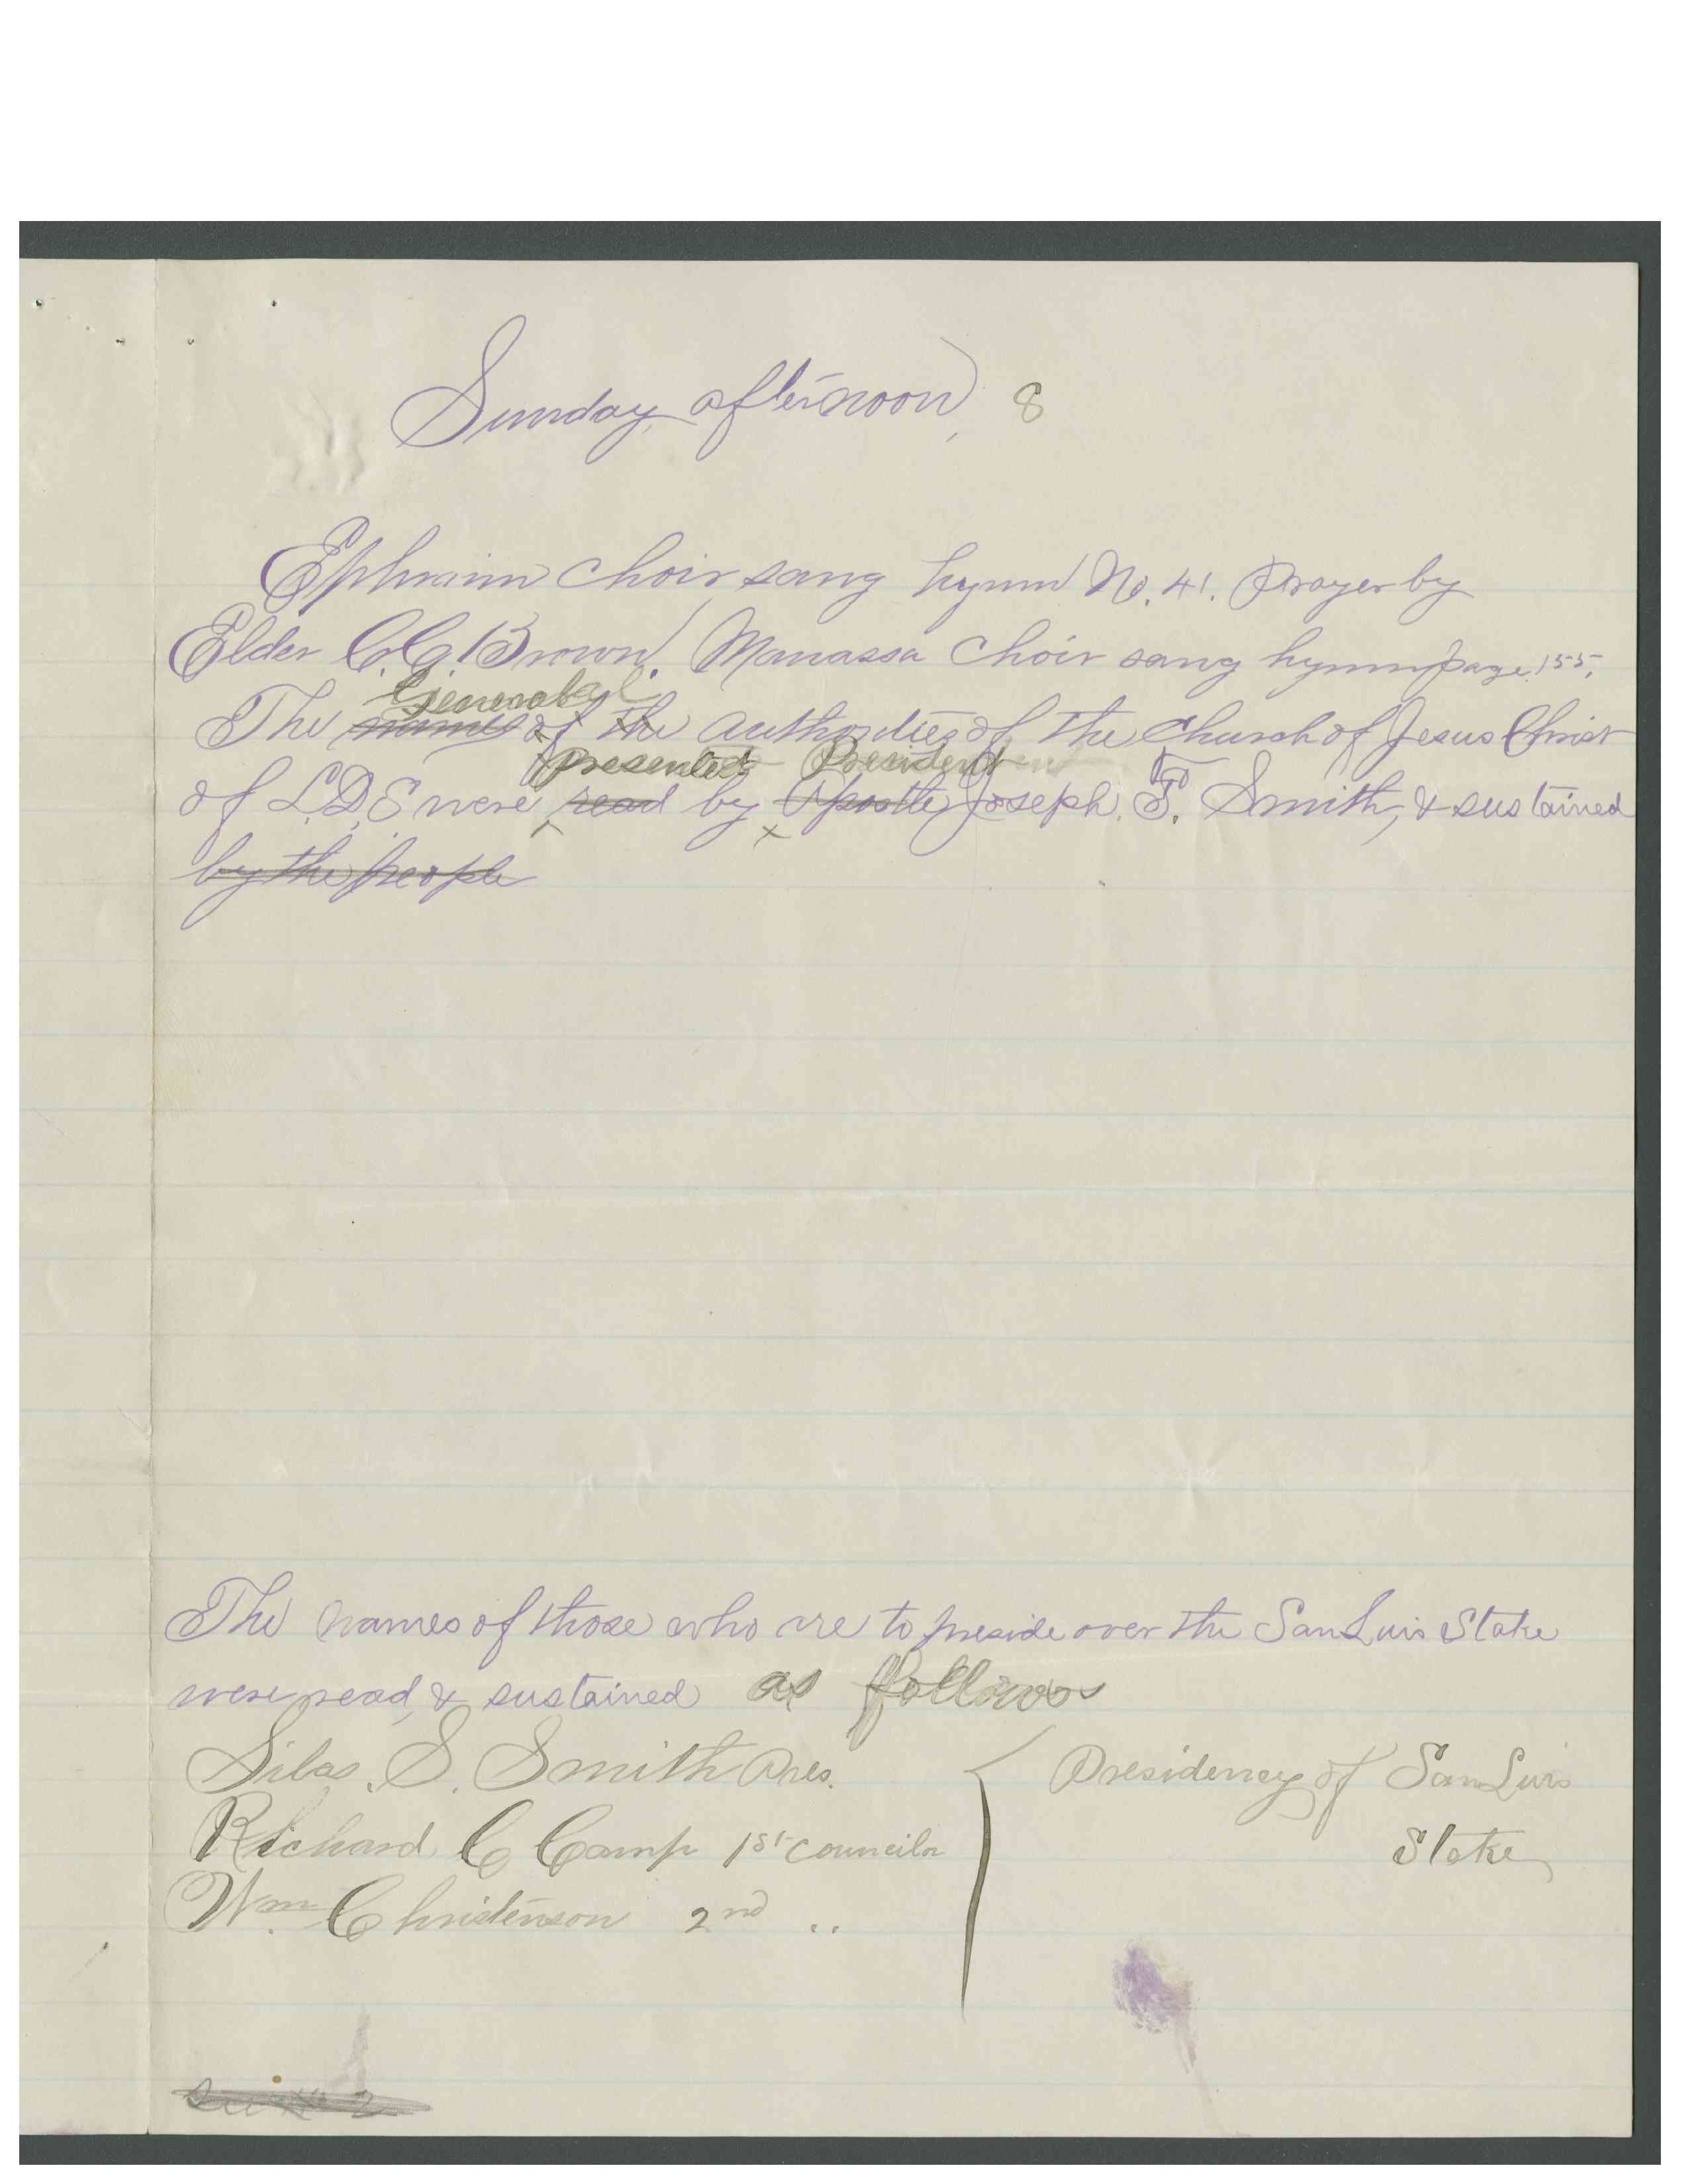 Sunday, afternoon, 8
Ephraim choir, sang hymn No. 41. Prayer by
Elder C. C. Brown. Manassa Choir sang hymn page 155,
General
The names of the authorities of the Church of Jesus Christ
presented President
of L.D.S were read by Apostle Joseph. F. Smith, & sustained
by the people
The names of those who are to preside over the San Luis Stake
were read, & sustained as follows
Silas. S. Smith Pres.
Presidency of San Luis
Richard C Camp 1st councilr
Stake
Wm. Christenson 2nd ..